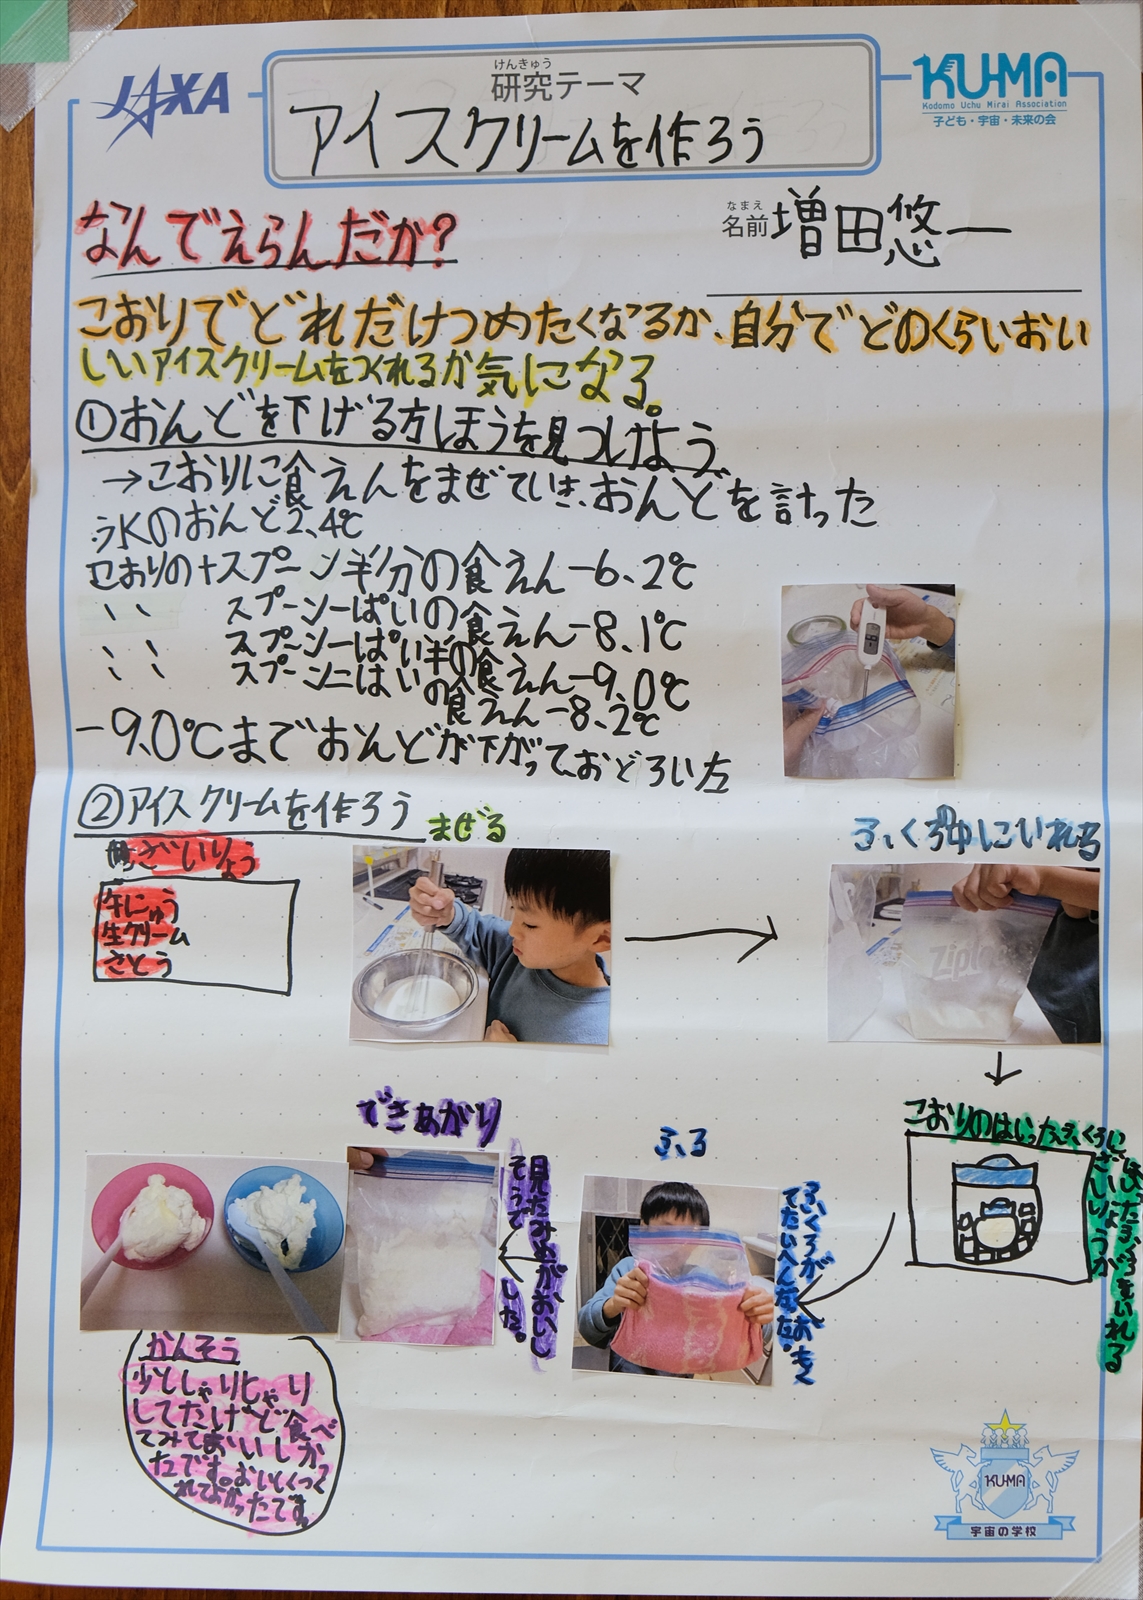 JAXA
けんきゅう
研究テーマ
アイスクリームを作ろう
KUMA
Kodomo Uchu Mirai Association
子ども・宇宙・未来の会
なまえ
名前 増田悠一
なんでえらんだか?
こおりでどれだけつめたくなるか、自分でどのくらいおい
しいアイスクリームをつくれるか気になる。
①おんどを下げる方ほうを見つけよう
→こおりに食えんをまぜていき、おんどを計った
氷のおんど2.4℃
こおりの+スプーン半分の食えん-6.2℃
〃 スプーン一ぱいの食えん-8.1℃
〃 スプーン一ぱい半の食えん-9.0℃
〃 スプーン二はいの食えん-8.2℃
-9.0℃までおんどが下がって、おどろいた
②アイスクリームを作ろう
ざいりょう
牛にゅう
生クリーム
さとう
まぜる
ふくろ中にいれる
Ziploc
こおりのはいったふくろに
ざいりょうが
はいったふくろをいれる
ふる
ふくろが
たいへんだった。
おもくて
できあがり
見ためがおいし
そうでした。
かんそう
少ししゃりしゃり
してたけど食べ
てみておいしかっ
たです。おいしくつく
れてよかったです。
KUMA
宇宙の学校